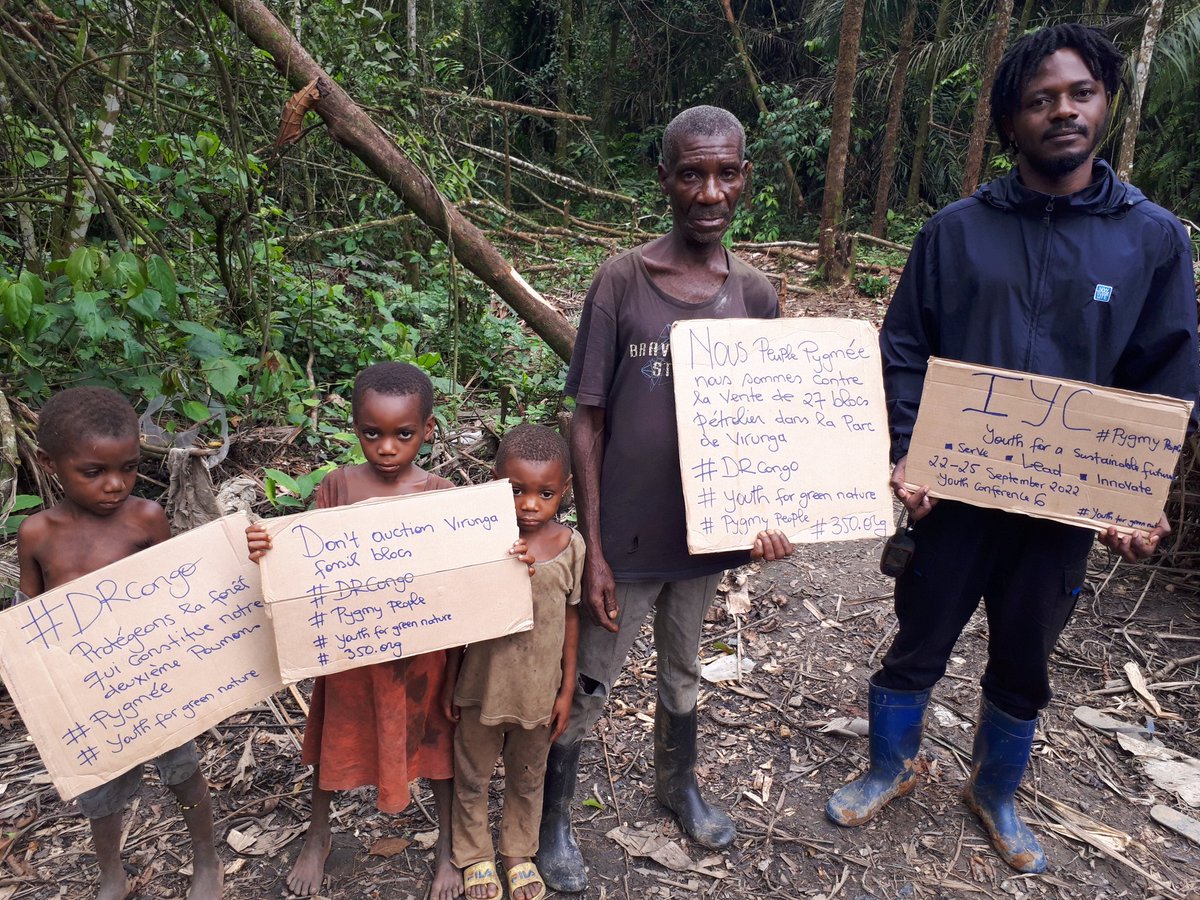 #DRCongo
Protégeons la forêt
qui constitue notre
deuxième Poumons
Pygmée
# Pygmée
# Youth for green nature
Don't auction Virunga
fossil blocs
# DRCongo
# Pygmy People
# Youth for green nature
# 350.org
BRAV
ST
Nous Peuple Pygmée
nous sommes contre
la Vente de 27 blocs
pétrolier dans la Parc
de Virunga
#DRCongo
# Youth for green nature
# Pygmy People #350.org
IYC #Pygmy Peopl
Youth for a sustainable future
▪ Serve ▪ Lead ▪ Innovate
22-25 September 2022
Youth Conference 6
#Youth for green nature
FILA
FILA